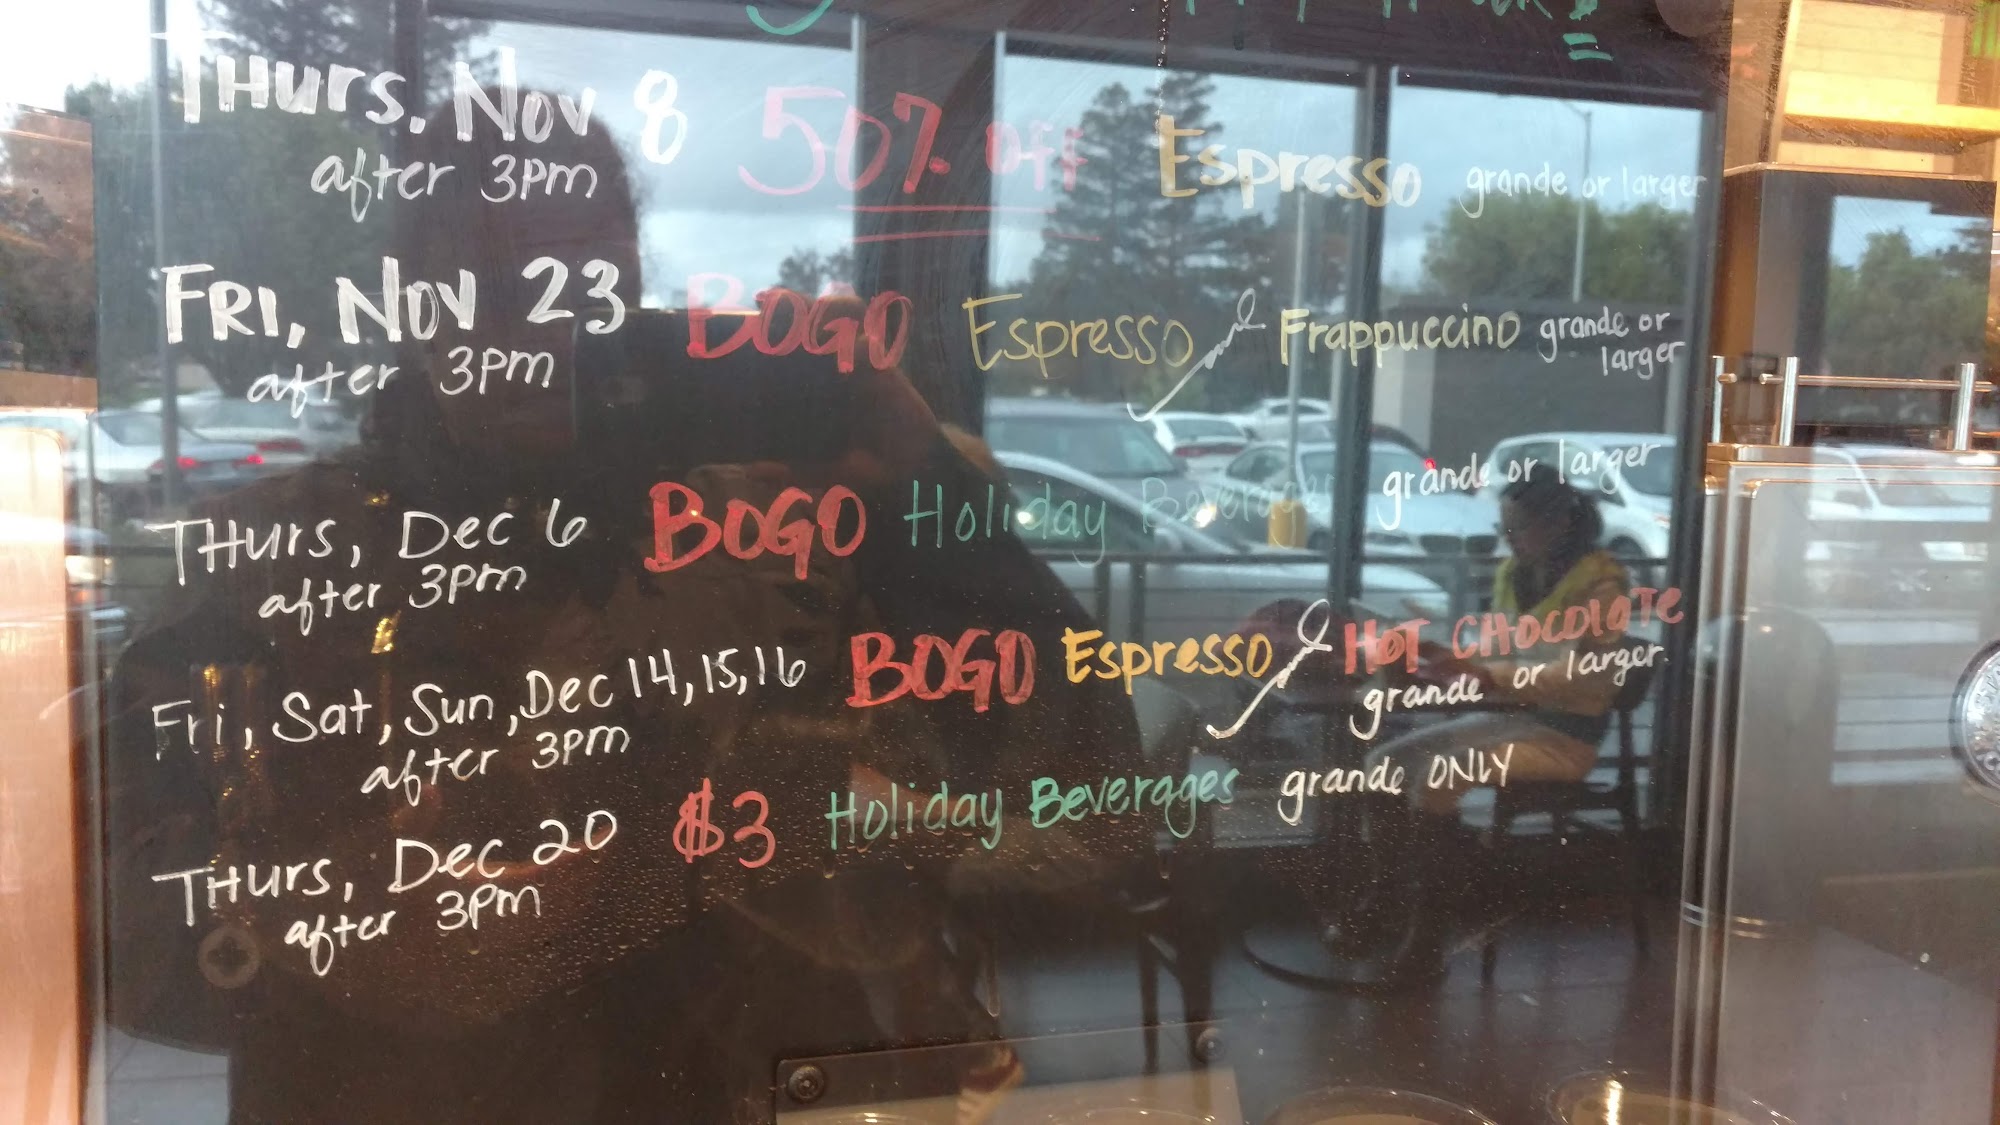 THurs, Nov 8 50% off Espresso grande or larger
after 3pm
FRI, Nov 23 BOGO Espresso & Frappuccino grande or
after 3pm larger
THurs, Dec 6 BOGO Holiday Beverages grande or larger
after 3pm
Fri, Sat, Sun, Dec 14, 15, 16 BOGO Espresso & HOT CHOCOLATE
after 3pm grande or larger
THurs, Dec 20 $3 Holiday Beverages grande ONLY
after 3pm